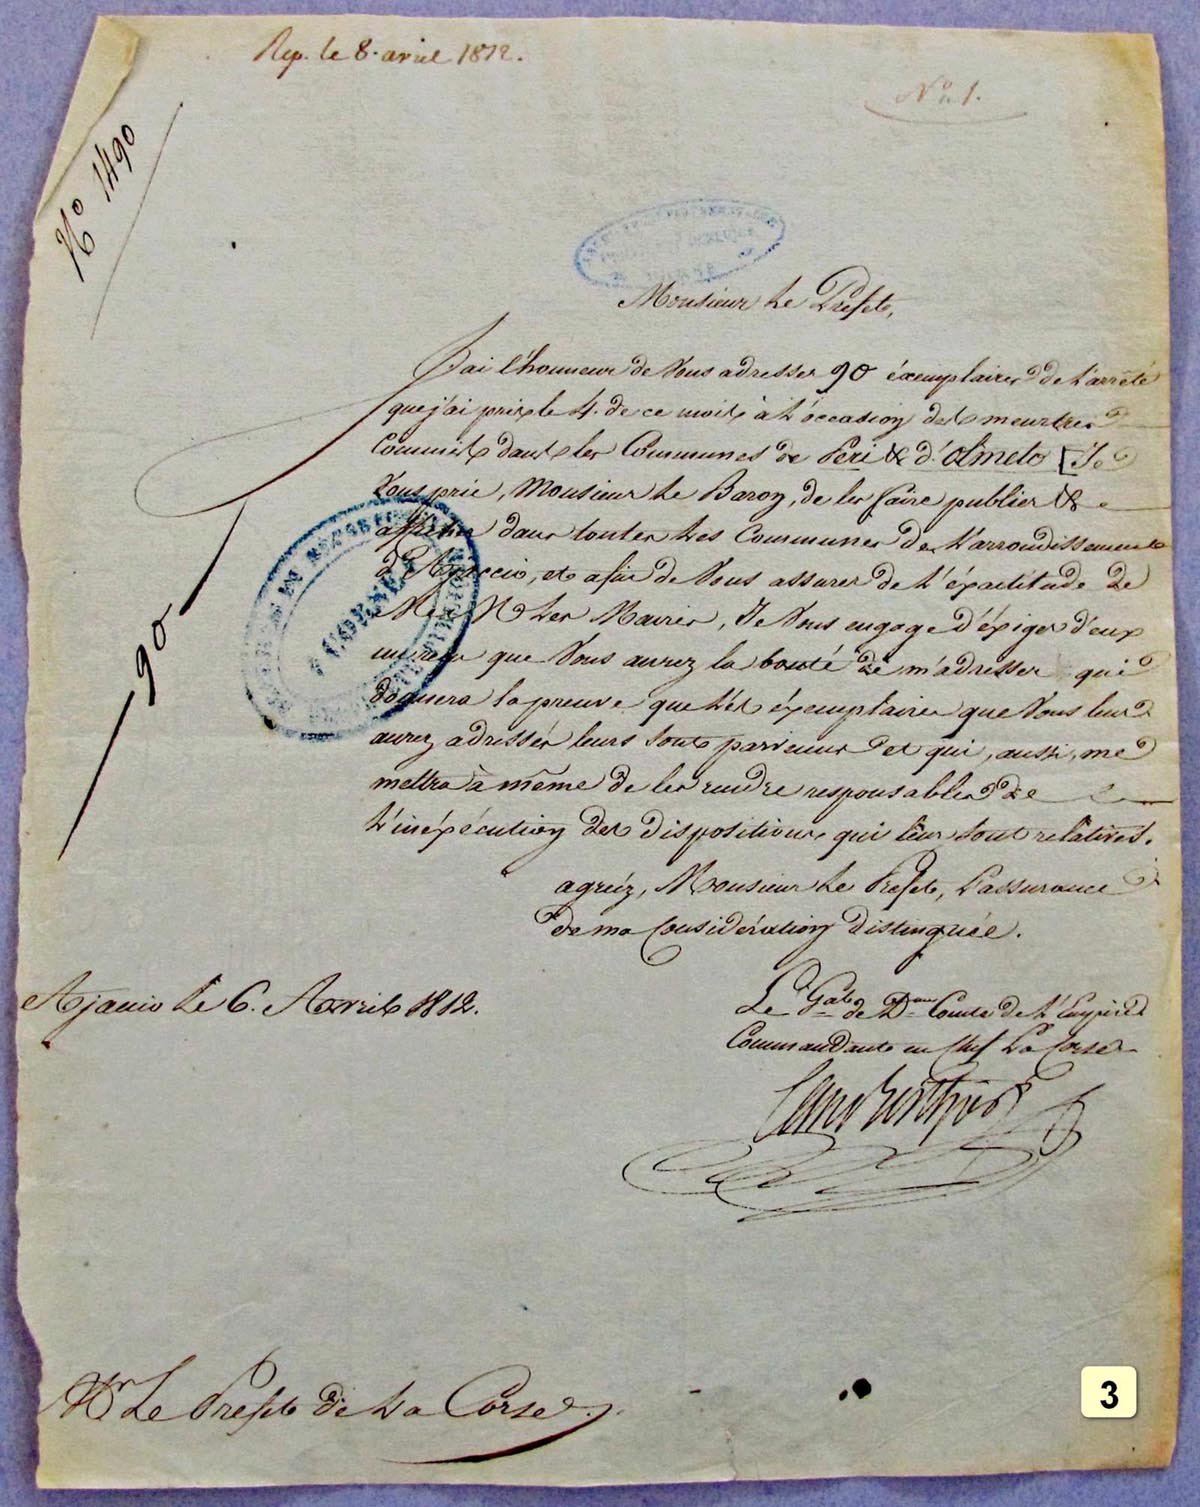 Rep. le 8. avril 1812.
N.° 1.
N° 1490
Monsieur Le Prefet,
J'ai l'honneur de Vous adresser 90 éxemplaires de L'arrêté
que j'ai pris le 4. de ce mois à L'occasion des meurtres
Commis dans les Communes de Peri & d'Olmeto [Je
Vous prie, Monsieur Le Baron, de les faire publier &
afficher dans toutes Les Communes de L'arrondissement
d'Ajaccio, et afin de Vous assurer de L'éxactitude de
M.M. Les Maires, Je Vous engage d'éxiger d'eux
un reçu que Vous aurez la bonté de m'adresser qui
donnera la preuve que Les éxemplaires que Vous leur
aurez adressés leurs sont parvenus et qui, aussi, me
mettra à même de les rendre responsables de
L'inéxécution des dispositions qui leur sont relatives.
90
agréez, Monsieur Le Prefet, L'assurance
de ma Considération distinguée.
Ajaccio Le 6. Avril 1812.
Le G.al de D.on Comte de L'Empire
Commandant en Chef La Corse
César Berthier
Mr Le Prefet de La Corse.
CORSE
3